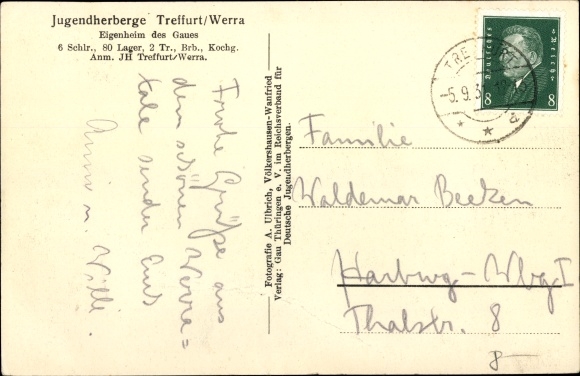 Jugendherberge Treffurt/Werra
Eigenheim des Gaues
6 Schlr., 80 Lager, 2 Tr., Brb., Kochg.
Anm. JH Treffurt/Werra.
Frohe Grüße aus
dem schönen Werra=
tale senden Euch
u. Willi.
Fotografie A. Ulbrich, Völkershausen-Wanfried
Verlag: Gau Thüringen e. V. im Reichsverband für
Deutsche Jugendherbergen.
Deutsches Reich
8 8
-5.9.3
Familie
Waldemar Beeken
Harburg-Wbg I
Thalstr. 8
8